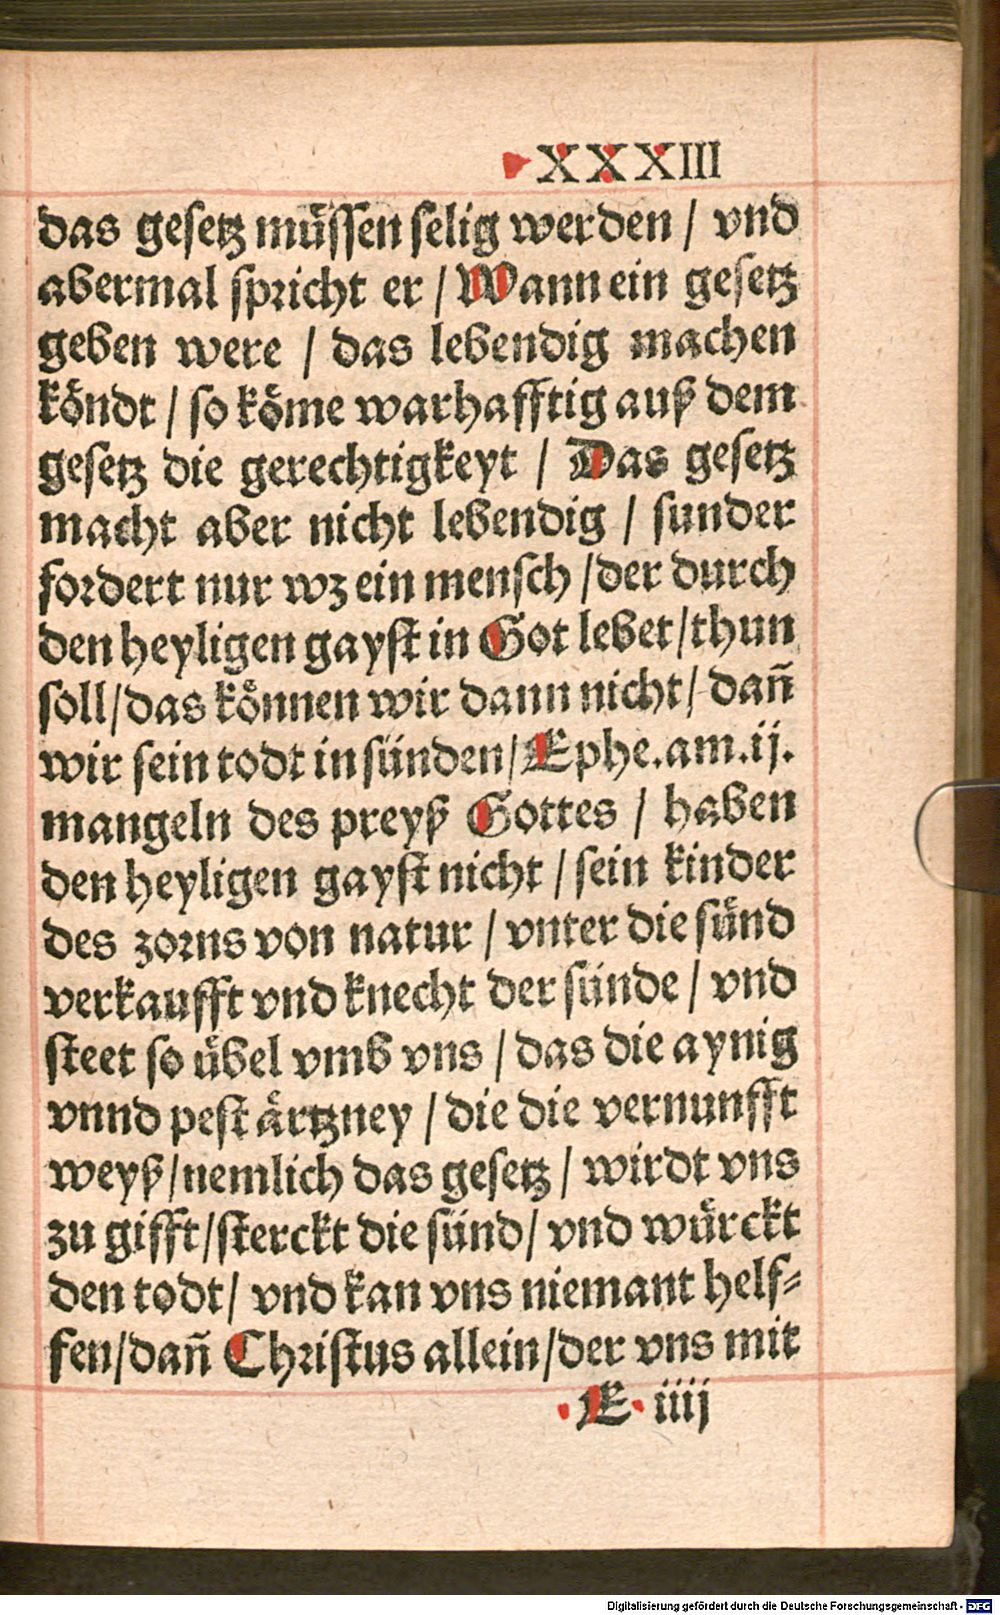 XXXIII
das gesetz müssen selig werden / vnd
abermal spricht er / Wann ein gesetz
geben were / das lebendig machen
köndt / so köme warhafftig auß dem
gesetz die gerechtigkeyt / Das gesetz
macht aber nicht lebendig / sunder
fordert nur wz ein mensch / der durch
den heyligen gayst in Got lebet / thun
soll / das können wir dann nicht / dañ
wir sein todt in sünden / Ephe. am .ij.
mangeln des preyß Gottes / haben
den heyligen gayst nicht / sein kinder
des zorns von natur / vnter die sünd
verkaufft vnd knecht der sünde / vnd
steet so übel vmb vns / das die aynig
vnnd pest ärtzney / die die vernunfft
weyß / nemlich das gesetz / wirdt vns
zu gifft / sterckt die sünd / vnd würckt
den todt / vnd kan vns niemant helf⸗
fen / dañ Christus allein / der vns mit
E iiij
Digitalisierung gefördert durch die Deutsche Forschungsgemeinschaft - DFG